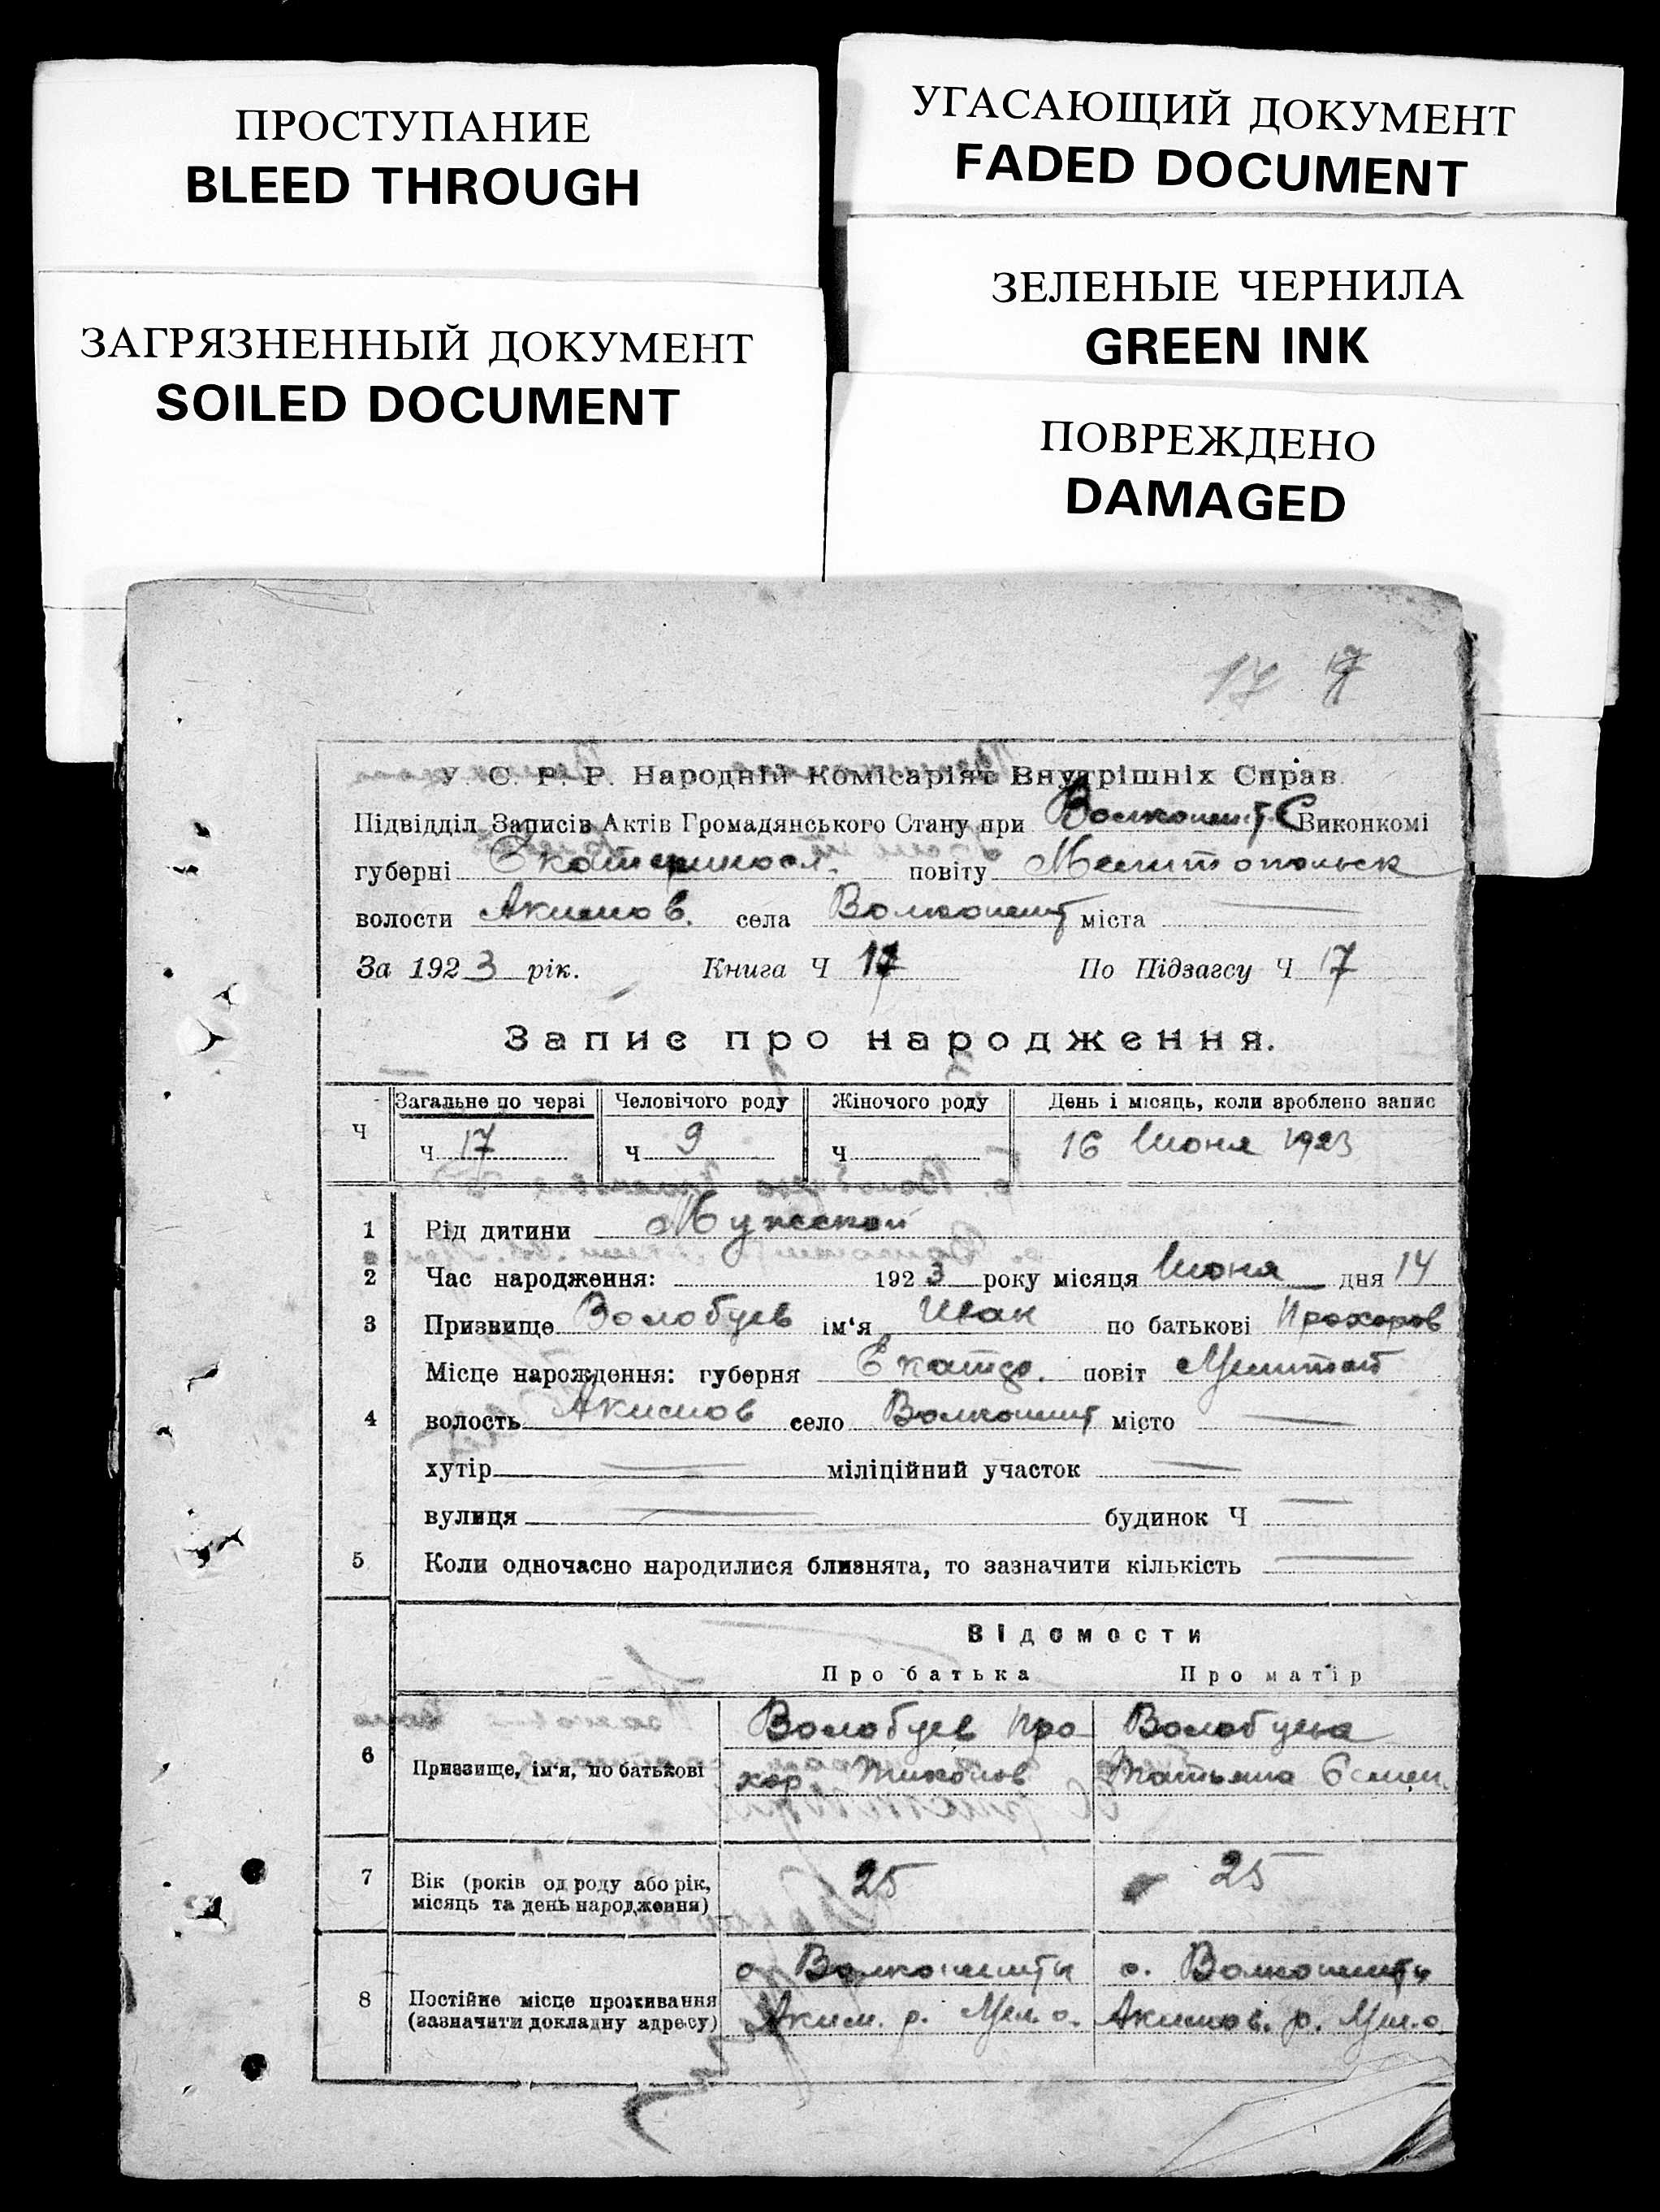 ПРОСТУПАНИЕ
BLEED THROUGH
ЗАГРЯЗНЕННЫЙ ДОКУМЕНТ
SOILED DOCUMENT
УГАСАЮЩИЙ ДОКУМЕНТ
FADED DOCUMENT
ЗЕЛЕНЫЕ ЧЕРНИЛА
GREEN INK
ПОВРЕЖДЕНО
DAMAGED
17 17
У. С. Р. Р. Народній Комісаріят Внутрішніх Справ.
Підвідділ Записів Актів Громадянського Стану при Волконешт. С Виконкомі
губерні Екатериносл. повіту Мелитопольск
волости Акимов. села Волконешт міста
За 1923 рік. Книга Ч 17 По Підзагсу Ч 17
Запис про народження.
Загальне по черзі Человічого роду Жіночого роду День і місяць, коли зроблено запис
Ч ч 17 ч 9 ч 16 Июня 1923
1 Рід дитини Мужской
2 Час народження: 1923 року місяця Июня дня 14
3 Призвище Волобуев ім'я Иван по батькові Прохоров
Місце нарождення: губерня повіт
4 волость Акимов село Волконешт місто
хутір міліційний участок
вулиця будинок Ч
5 Коли одночасно народилися близнята, то зазначити кількість
Відомости
Про батька Про матір
6 Призвище, ім'я, по батькові
Волобуев Про
хор Тихонов
Волобуева
Татьяна Семен.
7 Вік (років од роду або рік,
місяць та день народження)
25 25
8 Постійне місце проживання
(зазначити докладну адресу)
с. Волконешты
Аким. р. Мел. о.
с. Волконешты
Акимов. р. Мел. о.